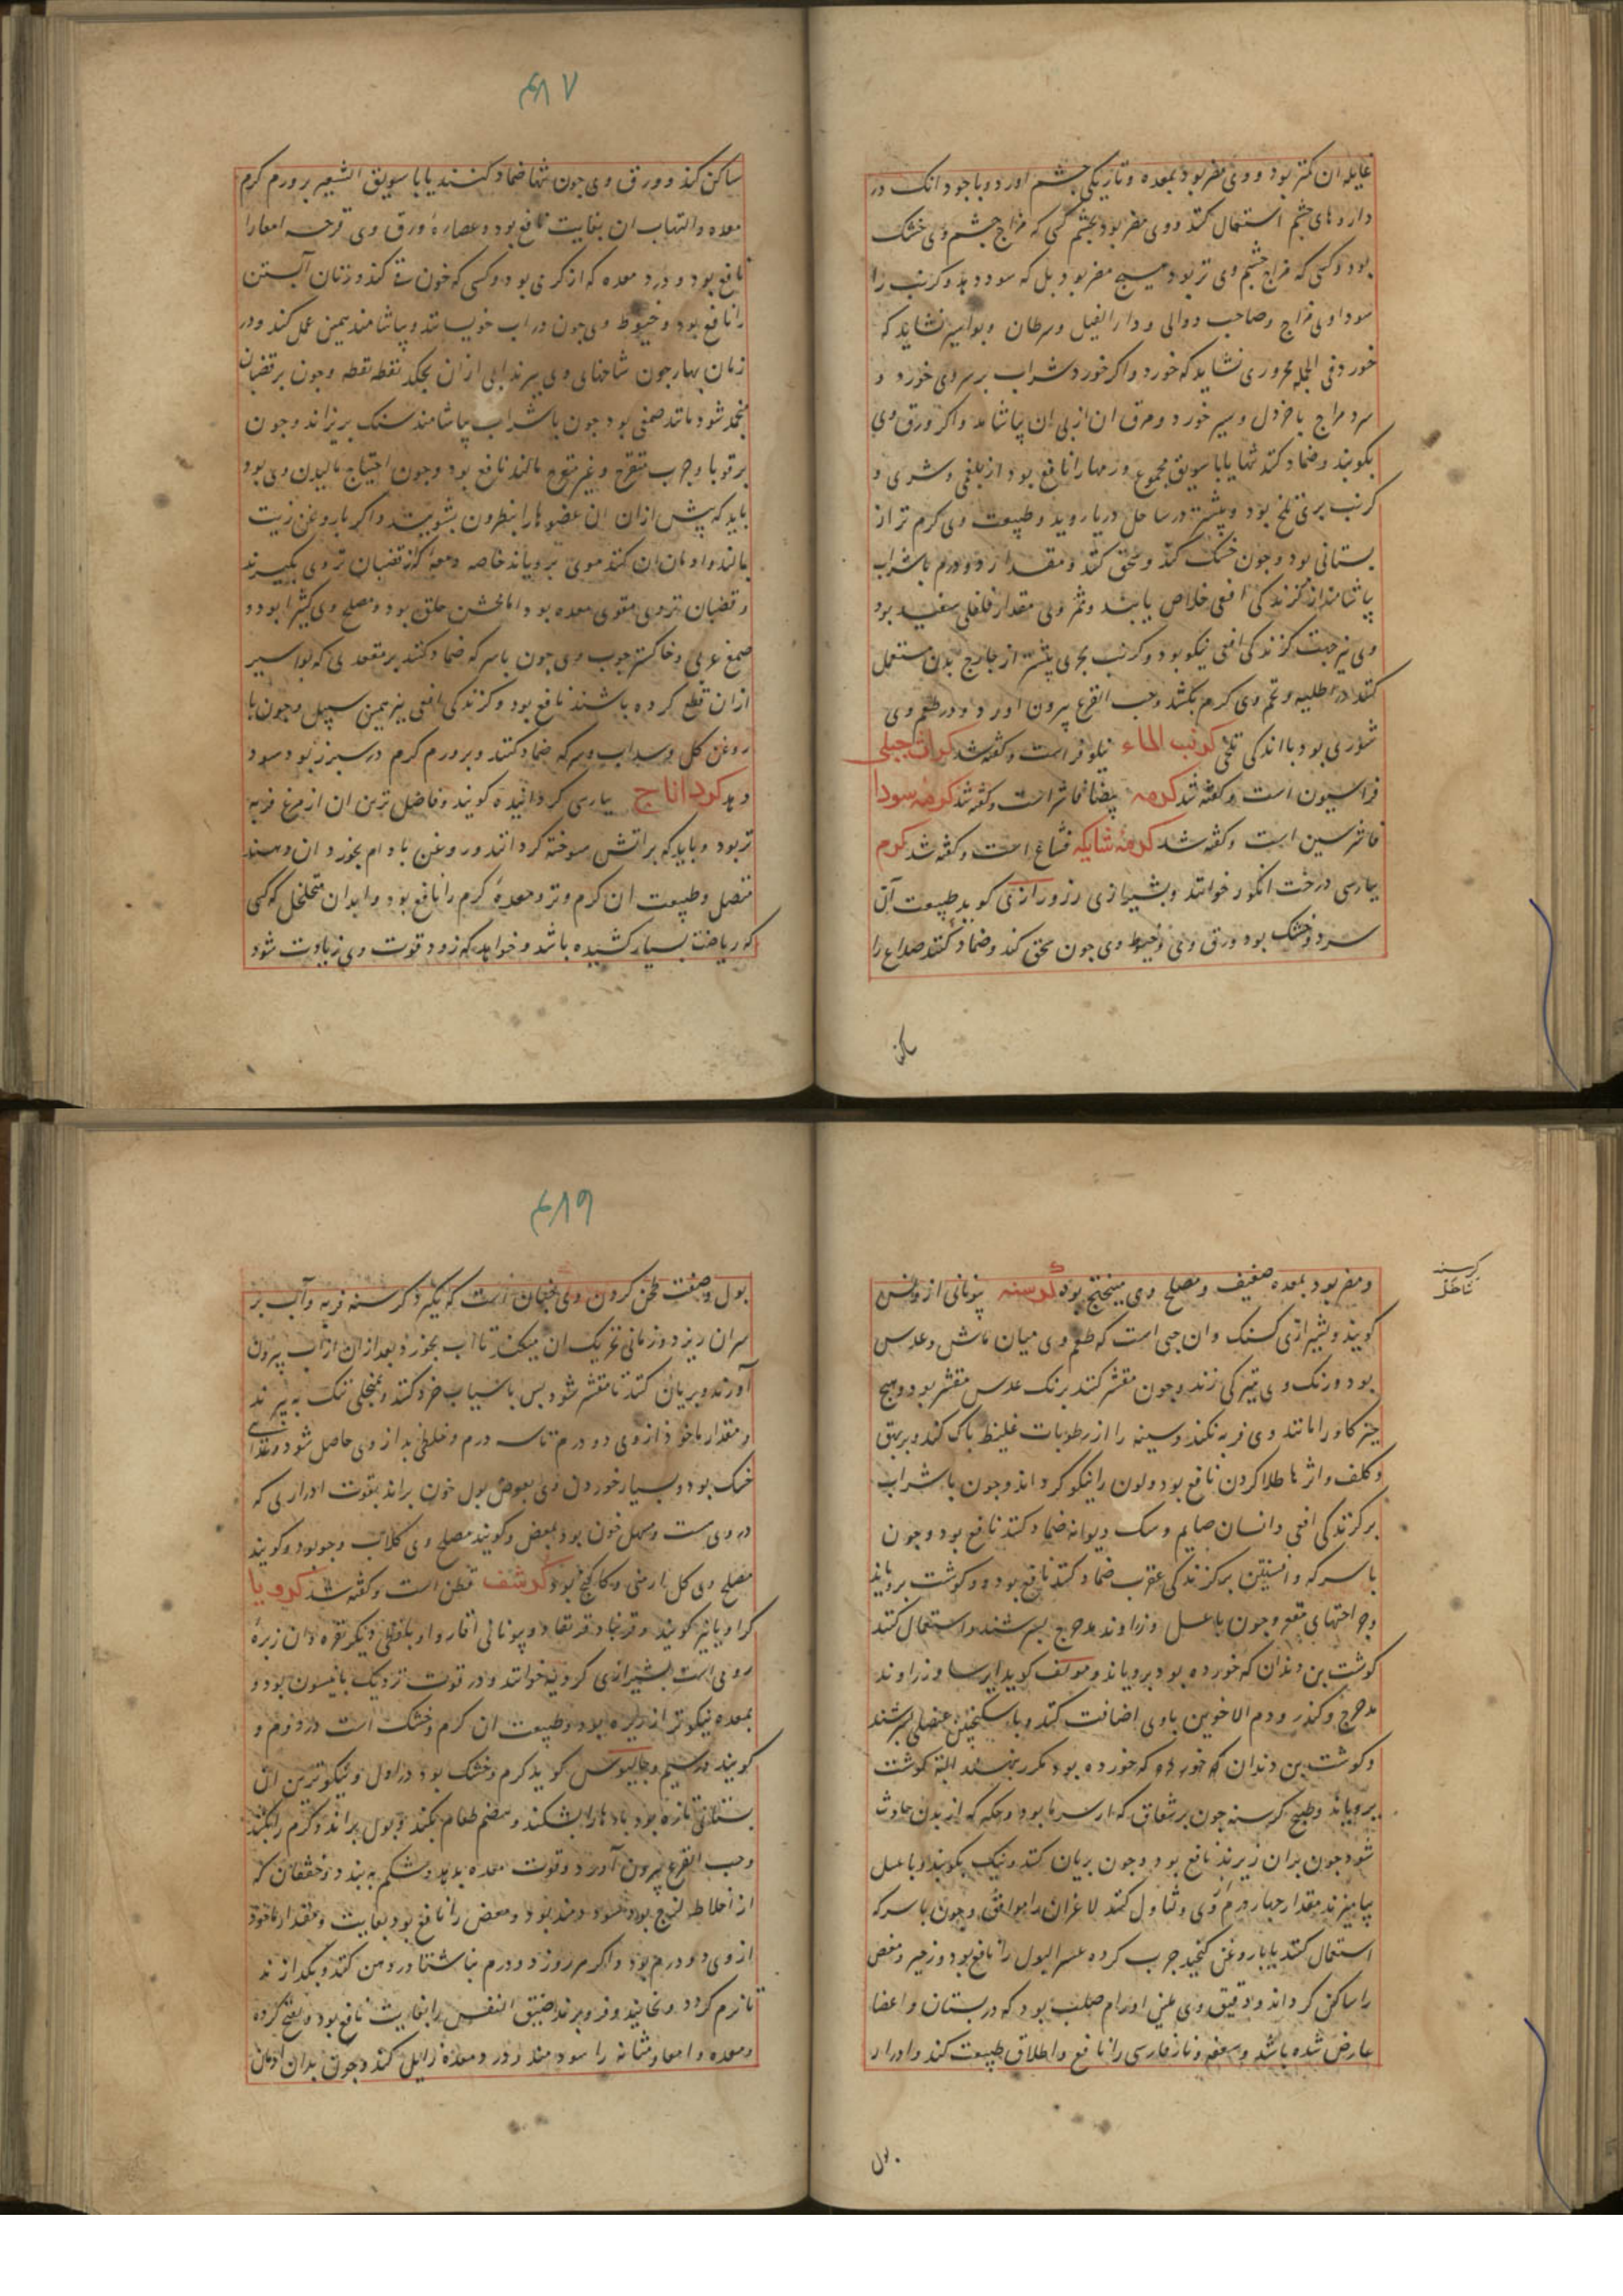 غایله آن کمتر بود و وی مضر بود بمعده و تاریکی چشم آورد و باجود انک در
داروهای چشم استعمال کنند و وی مضر بود بچشم کسی که مزاج چشم وی خشک
بود و کسی که مزاج چشم وی تر بود هیچ مضر بود بل که سود دهد و کرنب را
سوداوی مزاج و صاحب دوالی و داء الفیل و سرطان و بواسیر نشاید که
خورد فی الجمله محروری نشاید که خورد و اگر خورد شراب بر سر وی خورد و
سرد مزاج با خردل و سیر خورد و مرق ان از پی ان بیاشامد و اگر ورق وی
بکوبند و ضماد کنند تنها یا با سویق مجموع ورمها را نافع بود از بلغمی و شری و
کرنب بری تلخ بود و بیشتر در ساحل دریا روید و طبیعت وی گرم تر از
بستانی بود و چون خشک کنند و سحق کنند و مقدار دو درم با شراب
بیاشامند از گزندگی افعی خلاص یابند و ثمر وی مقدار فلفلی سفید بود
وی نیز جهت گزندگی افعی نیکو بود و کرنب بحری بیشتر از خارج بدن مستعمل
کنند در اطلیه و تخم وی کرم بکشد و حب القرع بیرون اورد و در طعم وی
شوری بود با اندکی تلخی کرنب الماء نیلوفر است و گفته شد کراث جبلی
فراسیون است و گفته شد کرمه بیضا فاشرا است و گفته شد کرمه سودا
فاشرسین است و گفته شد کرمه شایکه فشاغ است و گفته شد کرم
بپارسی درخت انگور خوانند و بشیرازی رز و رازی گوید طبیعت آن
سرد و خشک بود ورق وی و خیوط وی چون سحق کند و ضماد کنند صداع را
ساکن
۴۸۷
ساکن کند و ورق وی چون تنها ضماد کنند یا با سویق الشعیر بر ورم گرم
معده و التهاب ان بغایت نافع بود و عصاره ورق وی قرحه امعا را
نافع بود و درد معده که از گرمی بود و کسی که خون قی کند و زنان آبستن
را نافع بود و خیوط وی چون در اب خویسانند و بیاشامند همین عمل کند و در
زمان بهار چون شاخهای وی ببرند ابی از ان بچکد نقطه نقطه و چون بر قضبان
منجمد شود مانند صمغی بود چون با شراب بیاشامند سنگ بریزاند و چون
بر قوبا و جرب متقرح و غیر متقرح مالند نافع بود و چون احتیاج مالیدن وی بود
باید که پیش از ان ان عضوها را بنطرون بشویند و اگر با روغن زیت
بمالند و ادمان ان کنند موی برویاند خاصه دمعه که از قضبان تر وی بگیرند
و قضبان تر وی مقوی معده بود اما مخشن حلق بود و مصلح وی کثیرا بود و
صمغ عربی و خاکستر چوب وی چون با سرکه ضماد کنند بر مقعدی که بواسیر
از ان قطع کرده باشند نافع بود و گزندگی افعی نیز بهمین سبیل و چون با
روغن گل و سداب و سرکه ضماد کنند و بر ورم گرم در سبرز بود سود
دهد کرداناج بپارسی گردانیده گویند و فاضل ترین ان از مرغ فربه
تر بود و باید که بر اتش سوخته گردانند و روغن بادام بخورد ان دهند
متصل و طبیعت ان گرم و تر و معدهٔ گرم را نافع بود و ابدان متخلخل که کسی
که ریاضت بسیار کشیده باشد و خواهد که زود قوت وی زیادت شود
کرسنه
و مضر بود بمعده ضعیف و مصلح وی میبختج بود کرسنه یونانی از
گویند و بشیرازی کسنک و ان حبی است که طعم وی میان ماش و عدس
بود و رنگ وی بتیرگی زند و چون مقشر کنند برنگ عدس مقشر بود و هیچ
چیز گاو را مانند وی فربه نکند و سینه را از رطوبات غلیظ پاک کند و بر بهق
و کلف و اثرها طلا کردن نافع بود و لون را نیکو گرداند و چون با شراب
بر گزندگی افعی و انسان صایم و سگ دیوانه ضماد کنند نافع بود و چون
با سرکه و افسنتین بر گزندگی عقرب ضماد کنند نافع بود و گوشت برویاند
و جراحتهای مقعر و چون با عسل و زراوند مدحرج بسرشند و استعمال کنند
گوشت بن دندان که خورده بود برویاند و مولف گوید ایرسا و زراوند
مدحرج و کندر و دم الاخوین با وی اضافت کنند و با سکنجبین عنصلی بسرشند
و گوشت بن دندان که خورده بود مکرر بنهند البته گوشت
برویاند و طبیخ کرسنه چون بر شقاق که از سرما بود و حکه که از بدن حادث
شود چون بران ریزند نافع بود و چون بریان کنند و نیک بکوبند و با عسل
بیامیزند مقدار چهار درم از وی و تناول کنند لاغران را موافق و چون با سرکه
استعمال کنند یا با روغن کنجد چرب کرده عسر البول را نافع بود و زحیر و مغص
را ساکن گرداند و دقیق وی ملین اورام صلب بود که در پستان و اعضا
عارض شده باشد و سعفه و نار فارسی را نافع و اطلاق طبیعت کند و ادرار
بول
۴۸۹
بول و صنعت طحن کردن وی چنان است که بگیرد کرسنه فربه و آب بر
سر ان ریزد و زمانی تحریک ان میکند تا آب بخورد و بعد از ان از آب بیرون
آورند و بریان کنند تا مقشر شود پس باسیاب خرد کنند و بمنخلی تنک به بیزند
و مقدار ماخوذ از وی دو درم تا سه درم و خلطی بد از وی حاصل شود و غذای
خشک بود و بسیار خوردن وی بعوض بول خون براند بقوت ادراری که
در وی است و مسهل خون بود بمغص و گویند مصلح وی گلاب و جو بود و گویند
مصلح وی گل ارمنی و کاکنج بود کرشف قطن است و گفته شد کرویا
کراویا نیز گویند و قرنباد و قرنقاد و یونانی اقاروا و بلفظی دیگر نقره و ان زیرهٔ
رومی است بشیرازی کرویه خوانند و در قوت نزدیک بانیسون بود و
بمعده نیکوتر از زیره بود و طبیعت ان گرم و خشک است در دوم و
گویند در سیم و جالینوس گوید گرم و خشک بود در اول و نیکوترین ان
بستانی تازه بود بادها را بشکند و هضم طعام بکند و بول براند و کرم را بکشد
و حب القرع بیرون آورد و قوت معده بدهد و شکم به بندد و خفقان که
از اخلاط لزج بود سودمند بود و مغص را نافع بود بغایت و مقدار ماخوذ
از وی دو درم بود و اگر هر روز دو درم بناشتا در دهن کنند و بگدازند
تا نرم گردد و بخایند و فرو برند ضیق النفس را بغایت نافع بود و نفخ گرده
و معده و امعا و مثانه را سود مند و درد معده زایل کند و چون بدان ادمان